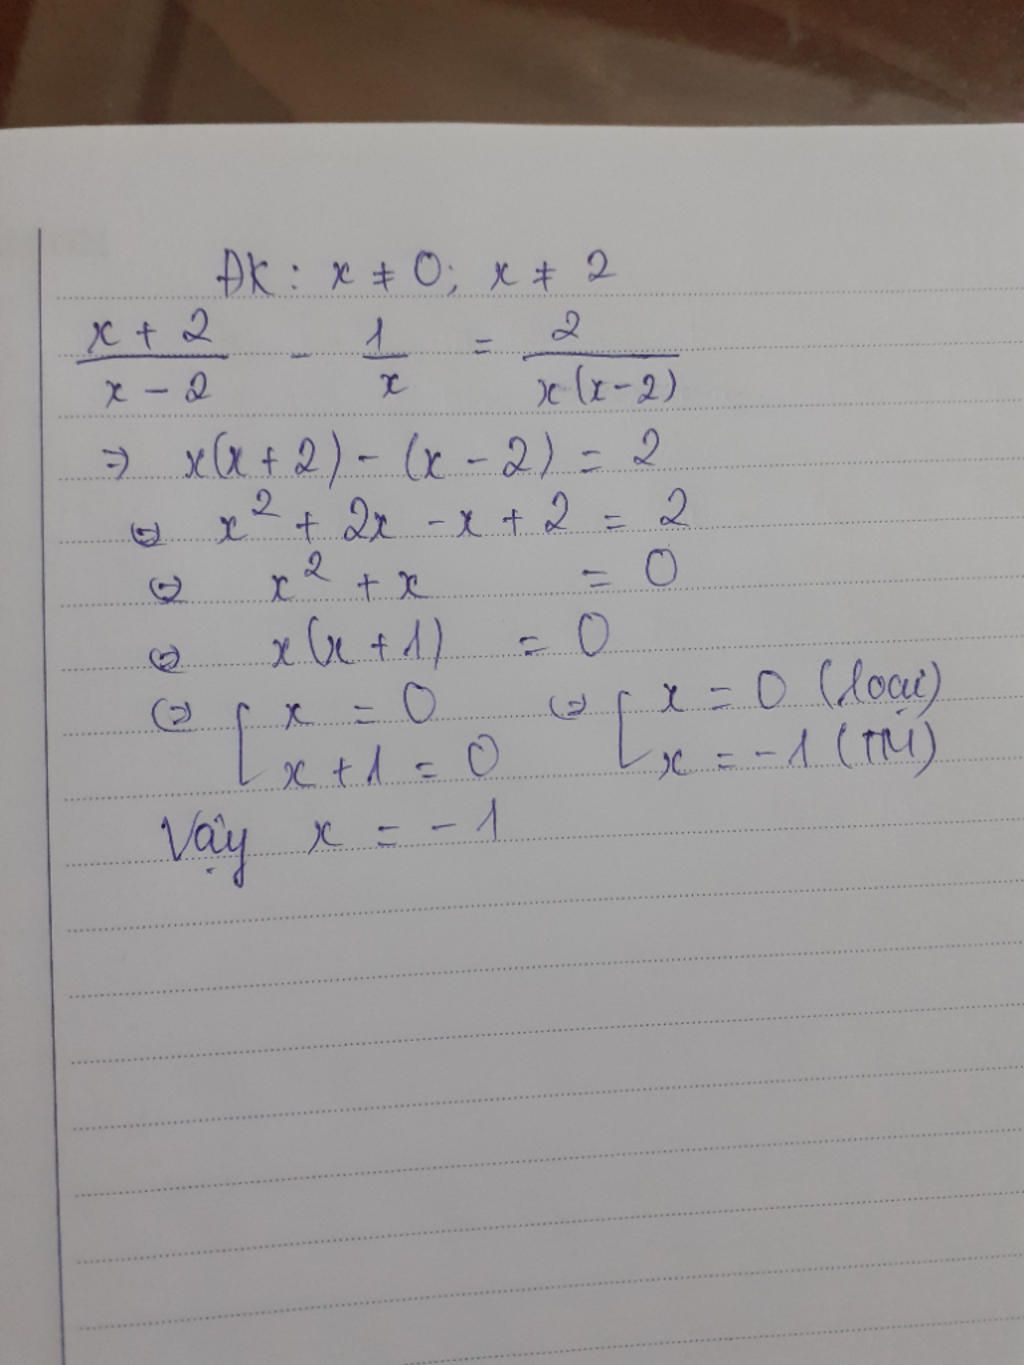 ĐK: x ≠ 0; x ≠ 2
(x + 2)/(x - 2) - 1/x = 2/(x(x-2))
=> x(x + 2) - (x - 2) = 2
<=> x² + 2x - x + 2 = 2
<=> x² + x = 0
<=> x(x + 1) = 0
<=> [ x = 0 <=> [ x = 0 (loại)
x + 1 = 0 x = -1 (TM)
Vậy x = -1